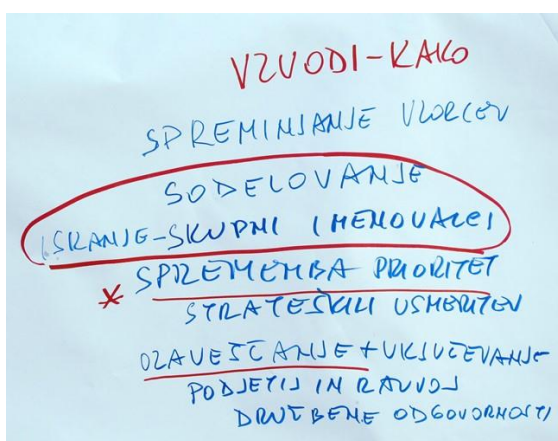 VZVODI-KAKO
SPREMINJANJE VZORCEV
SODELOVANJE
ISKANJE-SKUPNI IMENOVALCI
* SPREMEMBA PRIORITET
STRATEŠKIH USMERITEV
OZAVEŠČANJE + VKLJUČEVANJE
PODJETIJ IN RAZVOJ
DRUŽBENE ODGOVORNOSTI